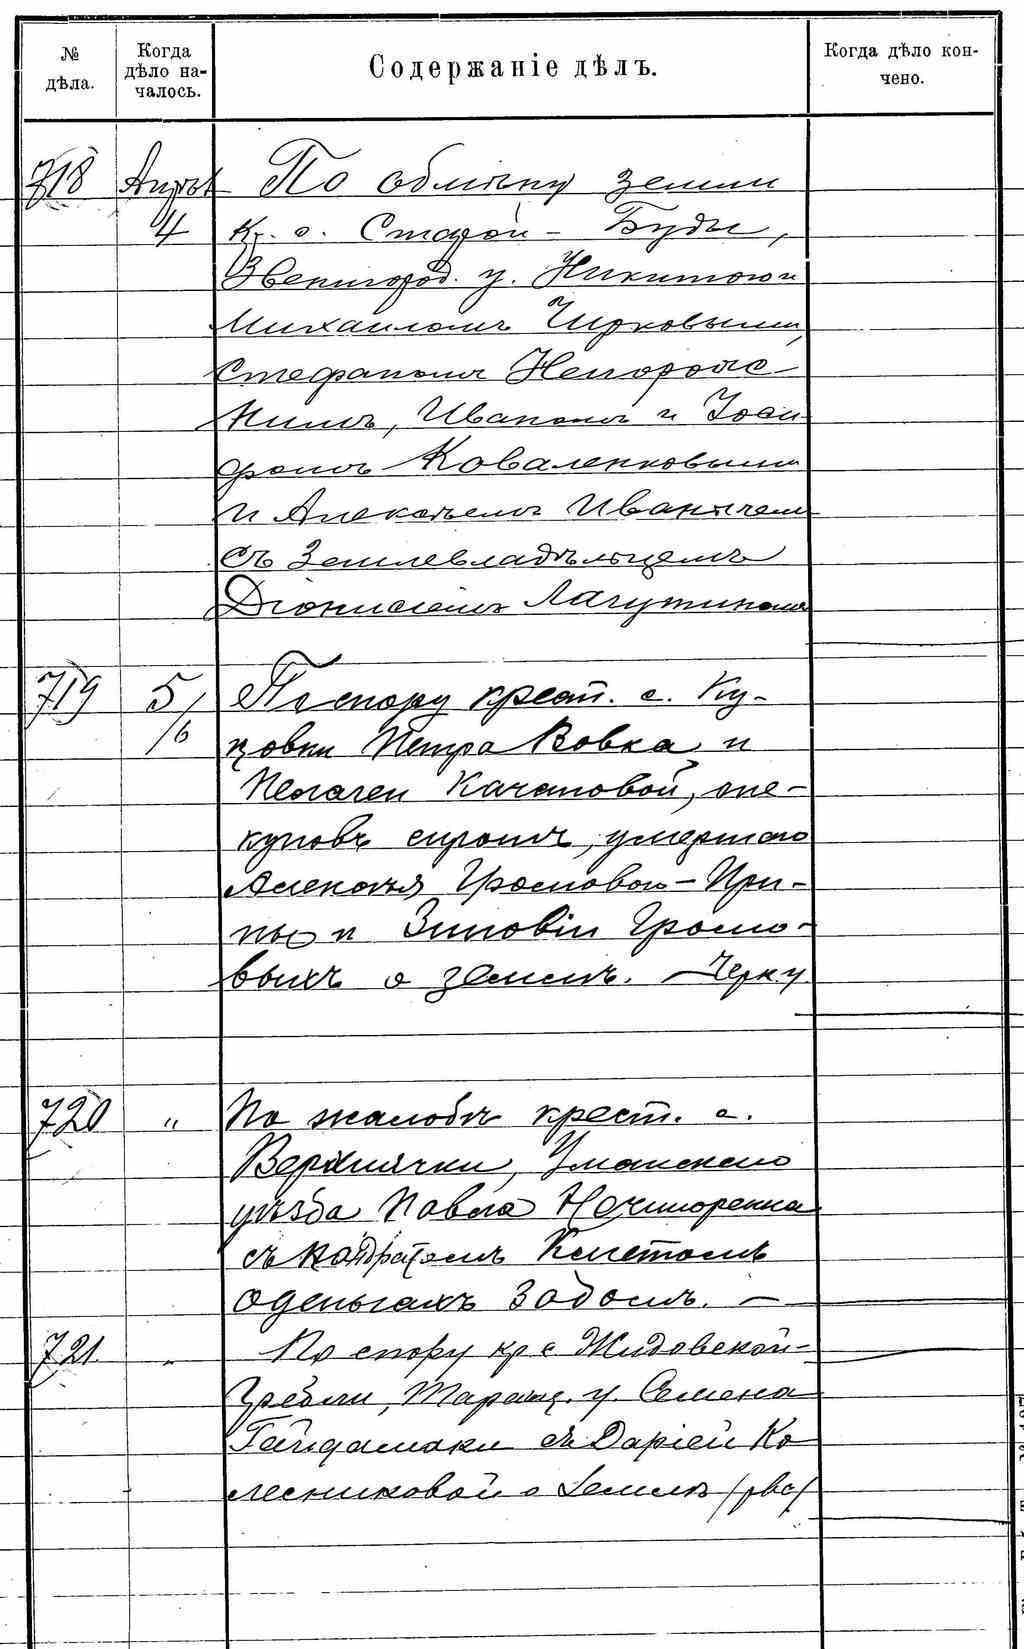 № дѣла.
Когда дѣло началось.
Содержаніе дѣлъ.
Когда дѣло кончено.
718 Апрѣл 4
По обмѣну земли
кр. с. Старой - Буды,
Звенигород. у. Никитою и
Михаиломъ Чирковыми,
Стефаномъ
Иваномъ и Іоси-
фомъ Коваленковыми
и Алексѣемъ
съ Землевладѣльцемъ
Діонисіемъ Лагутинымъ
719 5/6
По спору крест. с. Ку-
цовки Петра Вовка и
Пелагеи Качановой, опе-
куновъ сиротъ, умершаго
Алексѣя Громового - Ири-
ны и Зиновіи Громо-
выхъ о землѣ. -
720 "
По жалобѣ крест. с.
Верхнячки, Уманскаго
уѣзда Павла Нечипоренка
съ Кондратомъ
о деньгахъ за домъ. -
721. "
По спору кр с Жидовской-
Гребли, Таращ. у. Семена
Гайдамаки съ Даріей Ко
лесниковой о землѣ